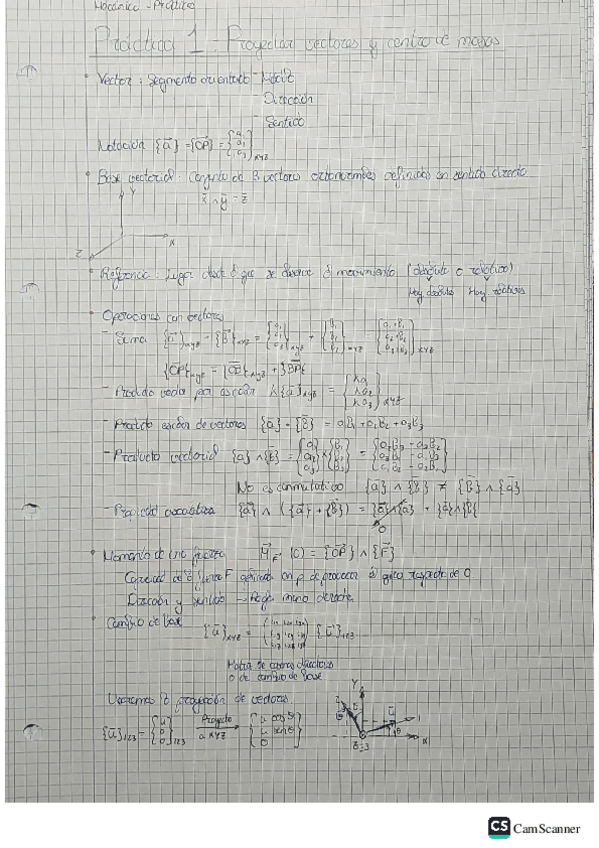 Mecánica - Práctica
Práctica 1: Proyectar vectores y centro de masas
• Vector: Segmento orientado - Módulo
- Dirección
- Sentido
Notación {a} = {OP} = {a₁ a₂ a₃}xyz
• Base vectorial: Conjunto de 3 vectores ortonormales definidos en sentido directo
x̄ ∧ ȳ = z̄
Y
X
Z
• Referencia: Lugar desde el que se observa el movimiento (absoluto o relativo)
• Operaciones con vectores
- Suma {a}xyz + {B}xyz = {a₁ a₂ a₃}xyz + {B₁ B₂ B₃}xyz {a₁+B₁ a₂+B₂ a₃+B₃}xyz
{OP}xyz = {OB}xyz + {BP}
- Producto vector por escalar λ{a}xyz = {λa₁ λa₂ λa₃}xyz
- Producto escalar de vectores {a} · {B} = a₁B₁ + a₂B₂ + a₃B₃
- Producto vectorial {a} ∧ {B} = {a₁ a₂ a₃} ∧ {B₁ B₂ B₃} = {a₂B₃ - a₃B₂ a₃B₁ - a₁B₃ a₁B₂ - a₂B₁}
No es conmutativo {a} ∧ {B} ≠ {B} ∧ {a}
- Propiedad asociativa {a} ∧ ({a} + {B}) = {a} ∧ {a} + {a} ∧ {B}
0
• Momento de una fuerza M_F (O) = {OP} ∧ {F}
Capacidad de la fuerza F en P de provocar el giro respecto de O
Dirección y sentido → Regla mano derecha
• Cambio de base {u}xyz = {u}123
Matriz de cosenos directores
o de cambio de base
Usaremos la proyección de vectores
{u}123 = {u 0 0}123 Proyecto a XYZ → {u cosθ u senθ 0}
Y
X
Z=3
CS CamScanner